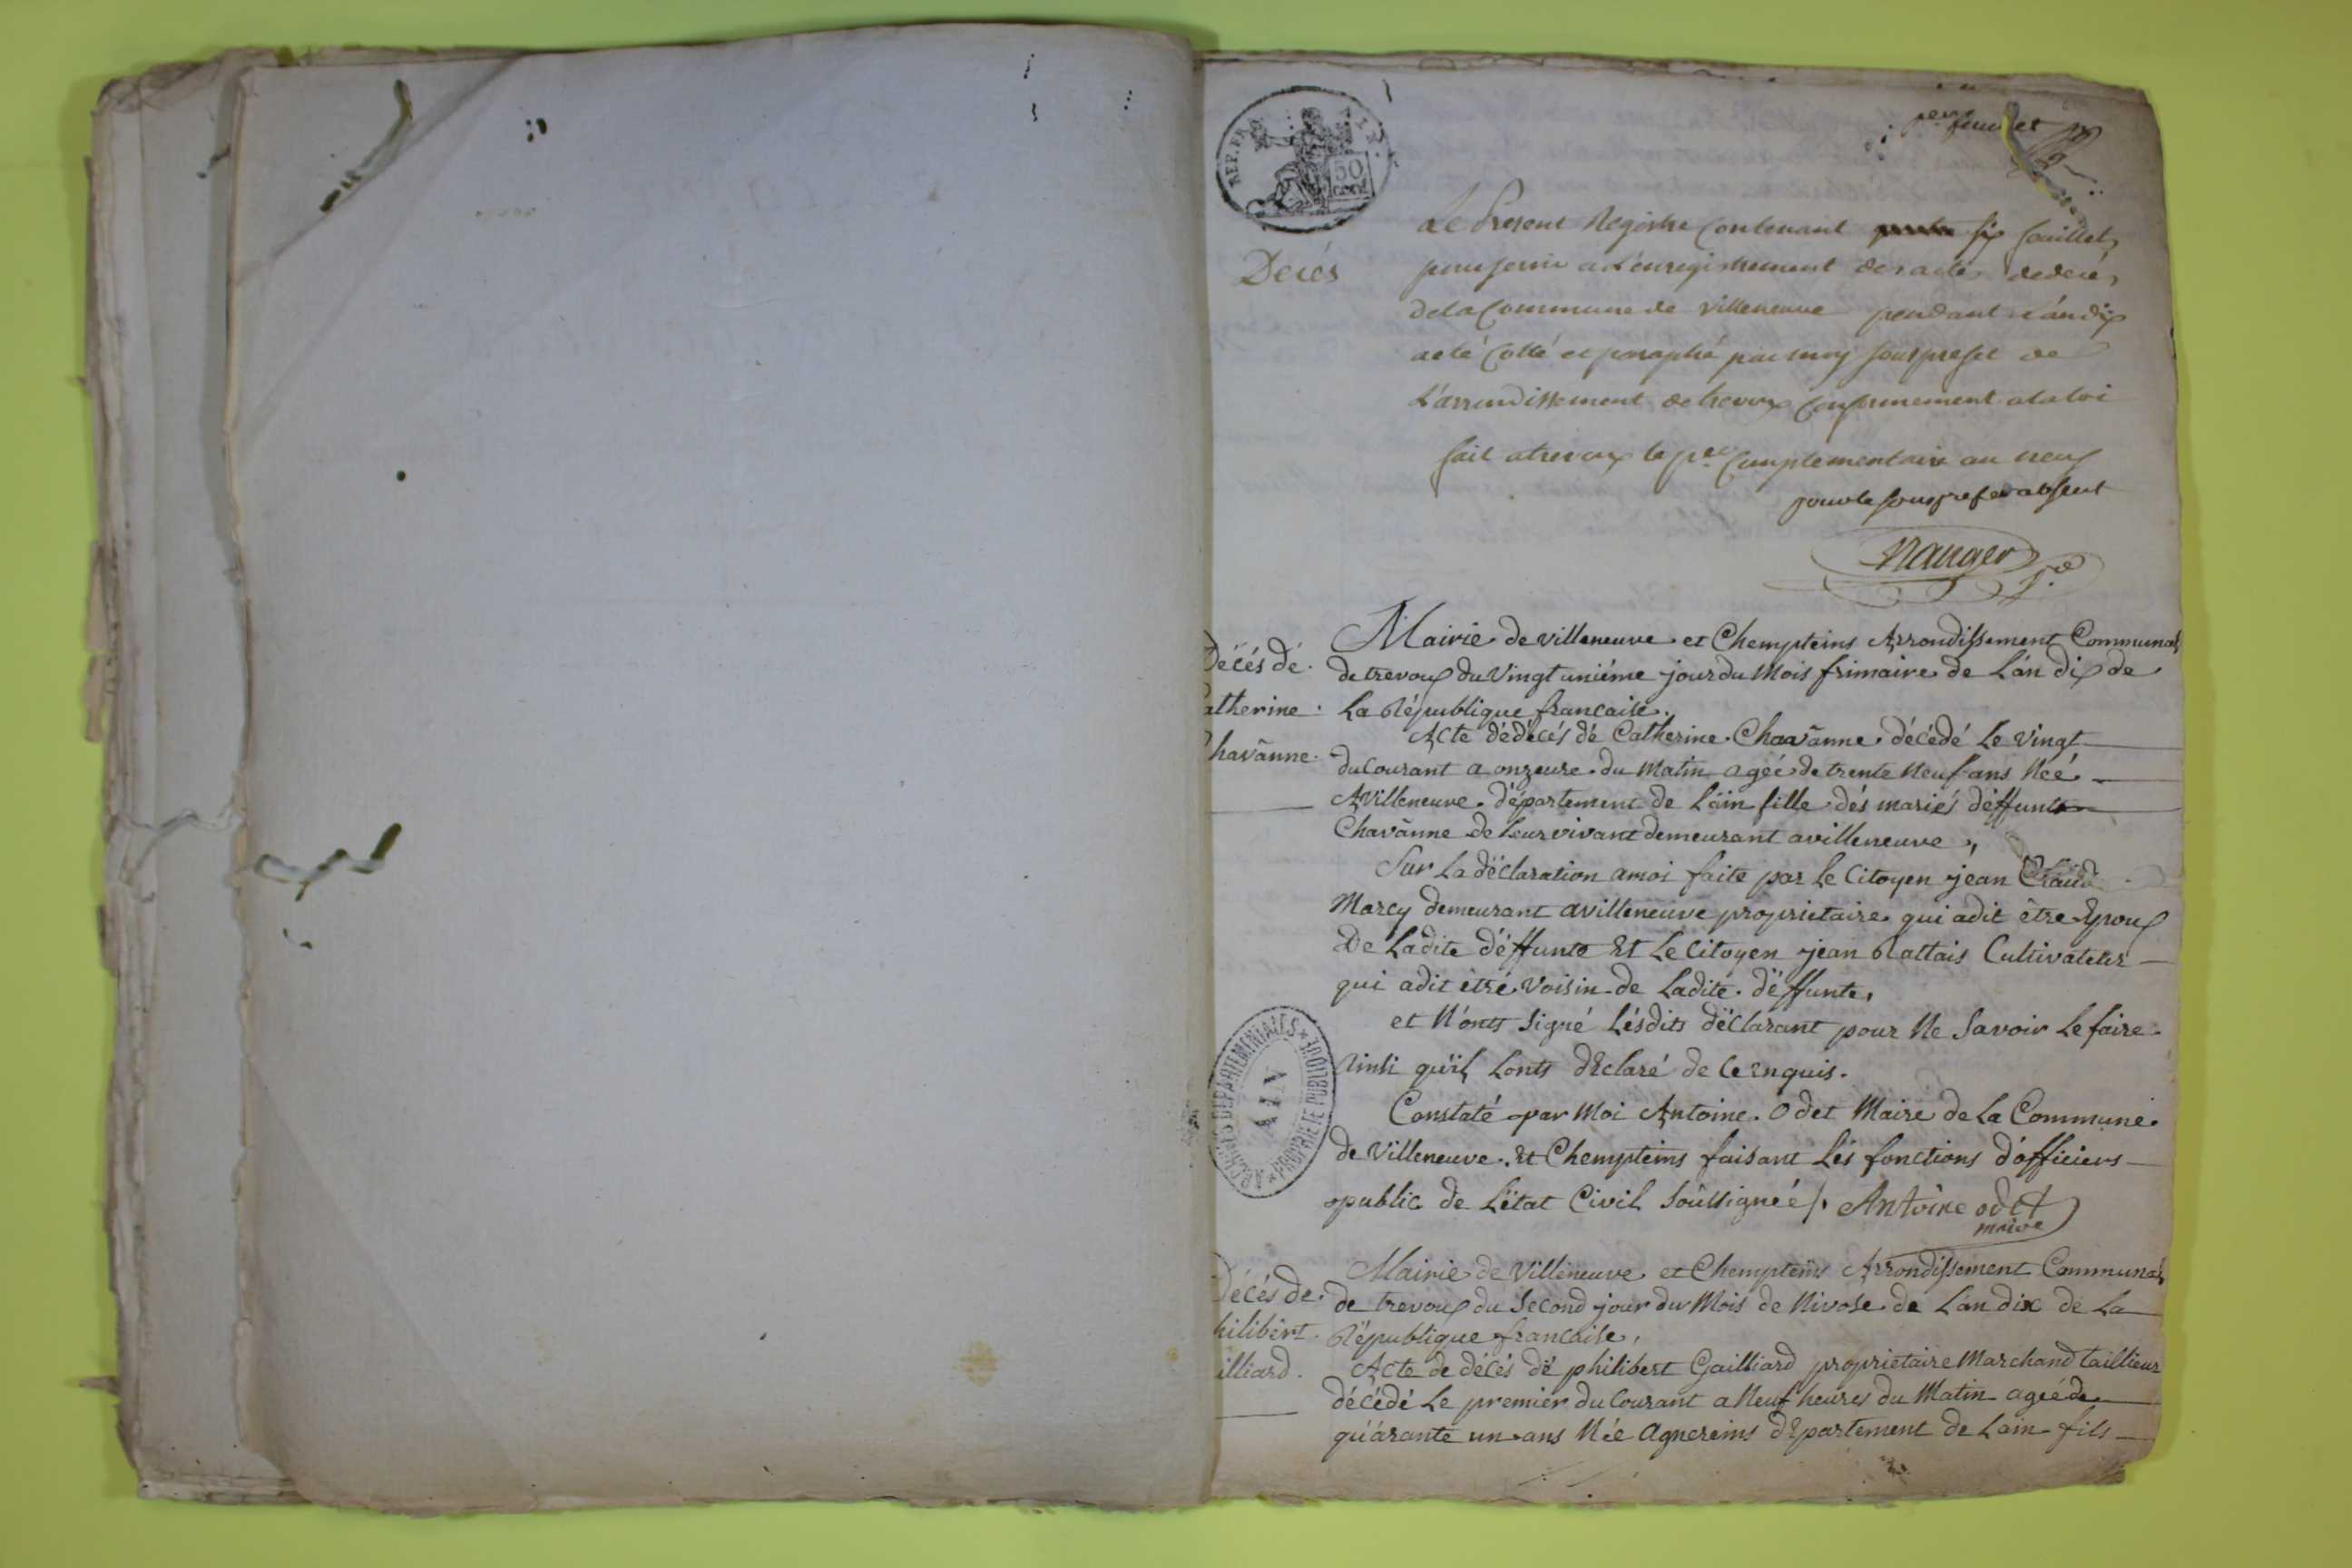 per feuillet
REP. FRA
50
cent
Le Present Registre Contenant six feuillets
Decés
pour servir a L'enregistrement des actes de decés
de la Commune de Villeneuve pendant L'án dix
a eté Cotté et paraphé par moy sous prefet de
L'arrondissement de trevoux Conformement a la loi
fait a trevoux le per Complementaire an neuf
pour le sous prefet absent
Décés dé
atherine
havanne
Mairie de villeneuve et Chempteins Arrondissement Communal
de trevoux du Vingt uniéme jour du Mois frimaire de L'án dix de
La République francaise.
Acte dé décés dé Catherine Chavanne décédé Le vingt
du Courant a onzeure du Matin ageé de trente Neuf ans Neé
A Villeneuve département de L'áin fille dés mariés déffunts
Chavanne de Leur vivant demeurant a villeneuve,
Sur La déclaration a moi faite par le Citoyen jean Claud
Marcy demeurant a villeneuve proprietaire qui a dit être Epoux
De Ladite déffunte Et Le Citoyen jean Rattais Cultivateur
qui a dit etré Voisin de Ladite déffunte,
et N'onts signé Lésdits déclarant pour Ne Savoir Le faire
Ainsi qu'il Lonts dEclaré de Ce Enquis.
Constaté par Moi Antoine Odet Maire de La Commune
de Villeneuve Et Chempteins faisant Lés fonctions d'officiers
public de L'état Civil Soussigneé /. Antoine odet
maire
ARCHIVES DEPARTEMENTALES * PROPRIETE PUBLIQUE *
AIN
Décés de
hilibert
illiard.
Mairie de Villeneuve et Chempteins Arrondissement Communal
de trevoux du Second jour du Mois de Nivose de Lan dix de La
République francaise,
Acte de décés dé philibert Gailliard proprietaire Marchand taillieur
décédé Le premier du Courant a Neuf heures du Matin ageé de
quárante un ans Née Agnereins dEpartement de Lain fils